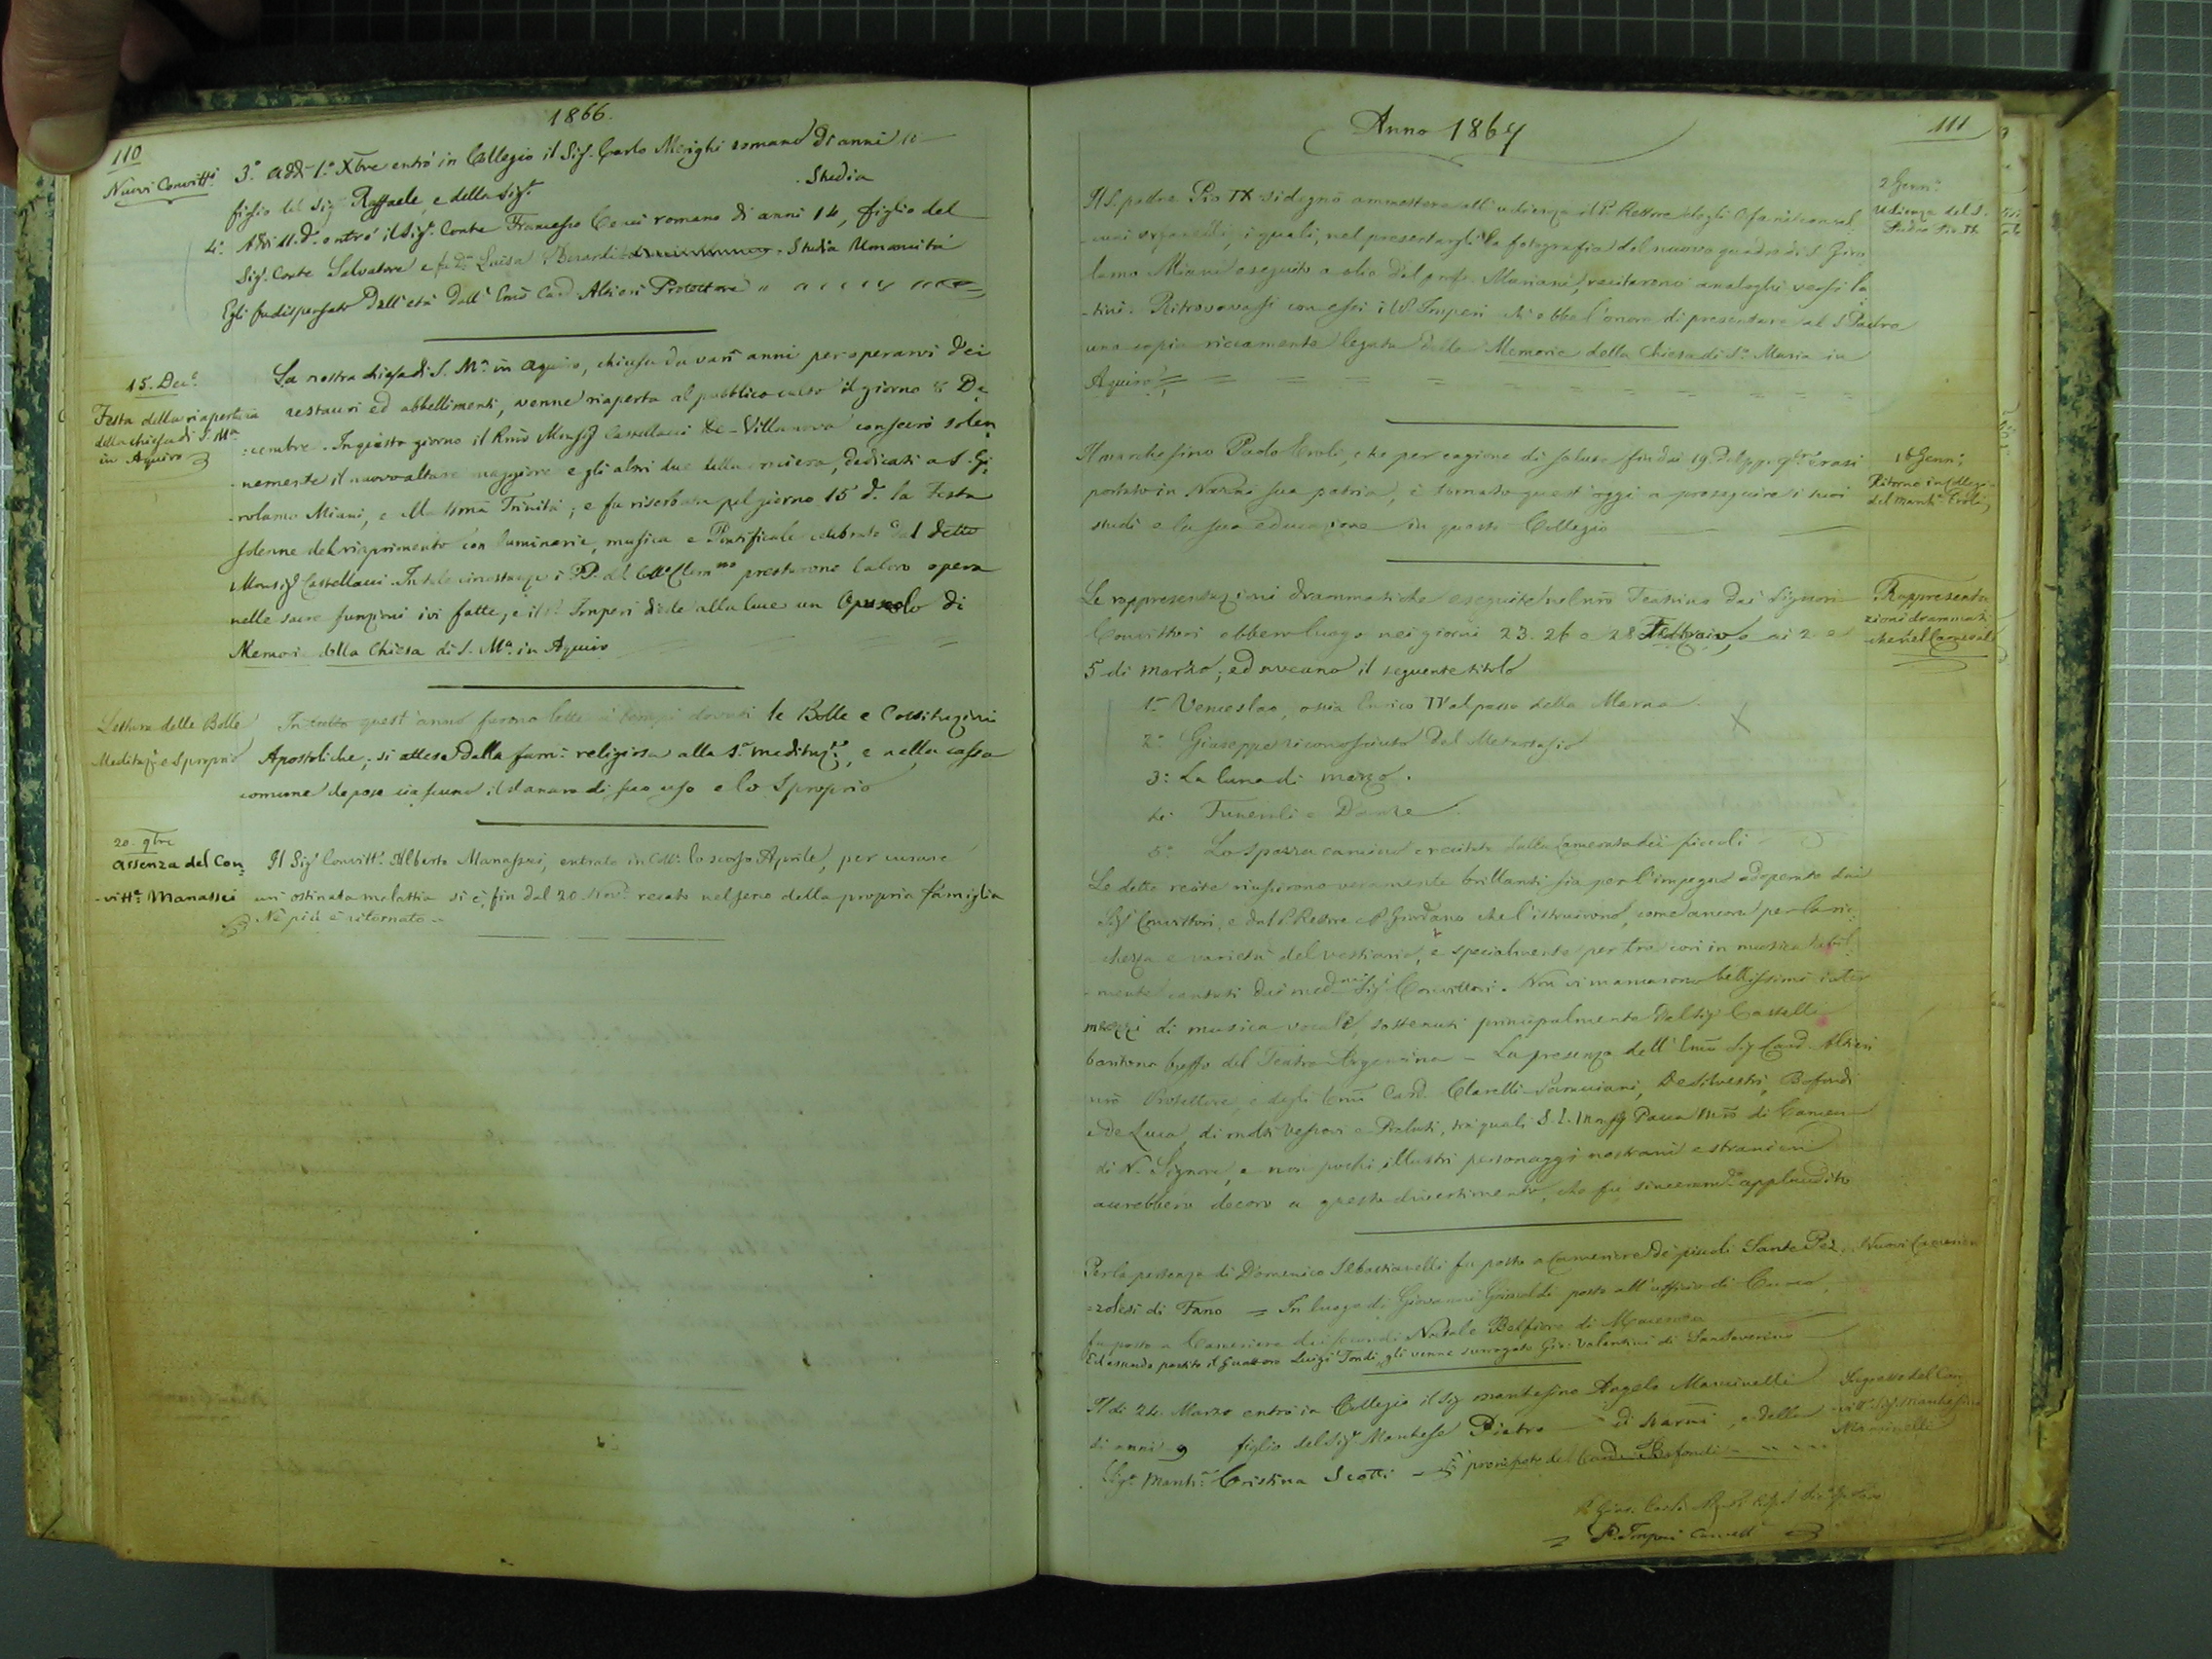 1866.
110
Nuovi Convitti.
3.° Addì 1.° Xbre entrò in Collegio il Sig. Carlo Merighi romano di anni 10
figlio del Sig. Raffaele, e della Sig.ra . Studia
4.° Addì 11. d.° entrò il Sig. Conte Francesco Cenci romano di anni 14, figlio del
Sig. Conte Salvatore e fu D.a Luisa Berardi . Studia Umanità
Egli fu dispensato dall'età dall'Emo Card. Altieri Protettore
15. Dec.e
Festa della riapertura
della chiesa di S. Ma
in Aquiro
La nostra chiesa di S. Ma. in Aquiro, chiusa da varî anni per operarvi dei
restauri ed abbellimenti, venne riaperta al pubblico culto il giorno 8 De
cembre. In questo giorno il Rmo Monsig Castellacci De-Villanova consacrò solen
nemente il nuovo altare maggiore e gli altri due della crociera, dedicati a S. Gi
rolamo Miani, e alla SSma Trinità; e fu riserbata pel giorno 15 d.° la Festa
solenne del riaprimento con luminarie, musica e Pontificale celebrato dal detto
Monsig Castellacci. In tale circostanza i PP. del Coll.° Clem.no prestarono la loro opera
nelle sacre funzioni ivi fatte, e il P. Imperi diede alla luce un Opuscolo di
Memorie della Chiesa di S. Ma. in Aquiro
Lettura delle Bolle
Meditaz.e e Sproprio
In quest'anno furono lette a' tempi dovuti le Bolle e Costituzioni
Apostoliche; si attese dalla fam.a religiosa alla S.a meditaz.e, e nella cassa
comune depose ciascuno il danaro di suo uso e lo Sproprio
20. 9bre
Assenza del Con
vitt.e Manassei
Il Sig. Convitt.e Alberto Manassei, entrato in Coll.° lo scorso Aprile, per curare
un'ostinata malattia si è, fin dal 20 Nov.e recato nel seno della propria famiglia
Nè più è ritornato
Anno 1867
111
2 Genn.°
Udienza del S.
Padre Pio IX
Il S. padre Pio IX si degnò ammettere all'udienza il P. Rettore degli Orfani con al
cuni orfanelli, i quali, nel presentargli la fotografia del nuovo quadro di S. Giro
lamo Miani eseguito a olio dal prof. Mariani, recitarono analoghi versi la
tini. Ritrovavasi con essi il P. Imperi che ebbe l'onore di presentare al S. Padre
una copia riccamente legata delle Memorie della Chiesa di S.a Maria in
Aquiro
16 Genn.°
Ritorno in Collegio
del March.e Eroli
Il marchesino Paolo Eroli, che per cagione di salute fin dai 19 del pp. erasi
portato in Narni sua patria, è tornato quest'oggi a proseguire i suoi
studi e la sua educazione in questo Collegio
Rappresenta
zioni drammati
che nel Carnevale
Le rappresentazioni drammatiche eseguite nel nro Teatrino dai Signori
Convittori ebbero luogo nei giorni 23. 26 e 28 Febbraio, e ai 2 e
5 di marzo; ed avevano il seguente titolo
1.° Venceslao, ossia Enrico IV al passo della Marna.
2.° Giuseppe riconosciuto del Metastasio
3.° La luna di marzo.
4.° Funerali e Danze.
5.° Lo spazzacamino recitato dalla Camerata dei piccoli
Le dette recite riuscirono veramente brillanti sia per l'impegno adoperato dai
Sigi Convittori, e dal P. Rettore e P. Giordano che l'istruirono, come ancora per la ric
chezza e varietà del vestiario, e specialmente per tre cori in musica
mente cantati dai med.mi Sigi Convittori. Non vi mancarono bellissimi inter
mezzi di musica vocale, sostenuti principalmente dal Sig. Castelli
baritono buffo del Teatro Argentina – La presenza dell'Emo Sig Card. Altieri
nro Protettore, e degli Emi Card. Clarelli-Paracciani, De Silvestri, Bofondi
e De Luca, di molti Vescovi e Prelati, tra quali S. E. Monsig Pacca Mro di Camera
di N. Signore, e non pochi illustri personaggi nostrani e stranieri
accrebbero decoro a questo divertimento, che fu sinceram.te applaudito
Nuovi Camerieri
Per la partenza di Domenico Sebastianelli fu posto a Cameriere de' piccoli Sante Pez
zolesi di Fano = In luogo di Giovanni Grimaldi posto all'ufficio di Cuoco,
fu posto a Cameriere dei secondi Natale Belfiore di Macerata
Ed essendo partito il Guattero Luigi Tondi, gli venne surrogato Gio. Valentini di Sanseverino
Ingresso del Con
vitt.e Sig. Marchesino
Mancinelli
Il dì 24. Marzo entrò in Collegio il Sig marchesino Angelo Mancinelli
di anni 9 figlio del Sig. Marchese Pietro di Narni, e della
Sig.a March.a Cristina Scotti – È pronipote del Card. Bofondi
P. Imperi